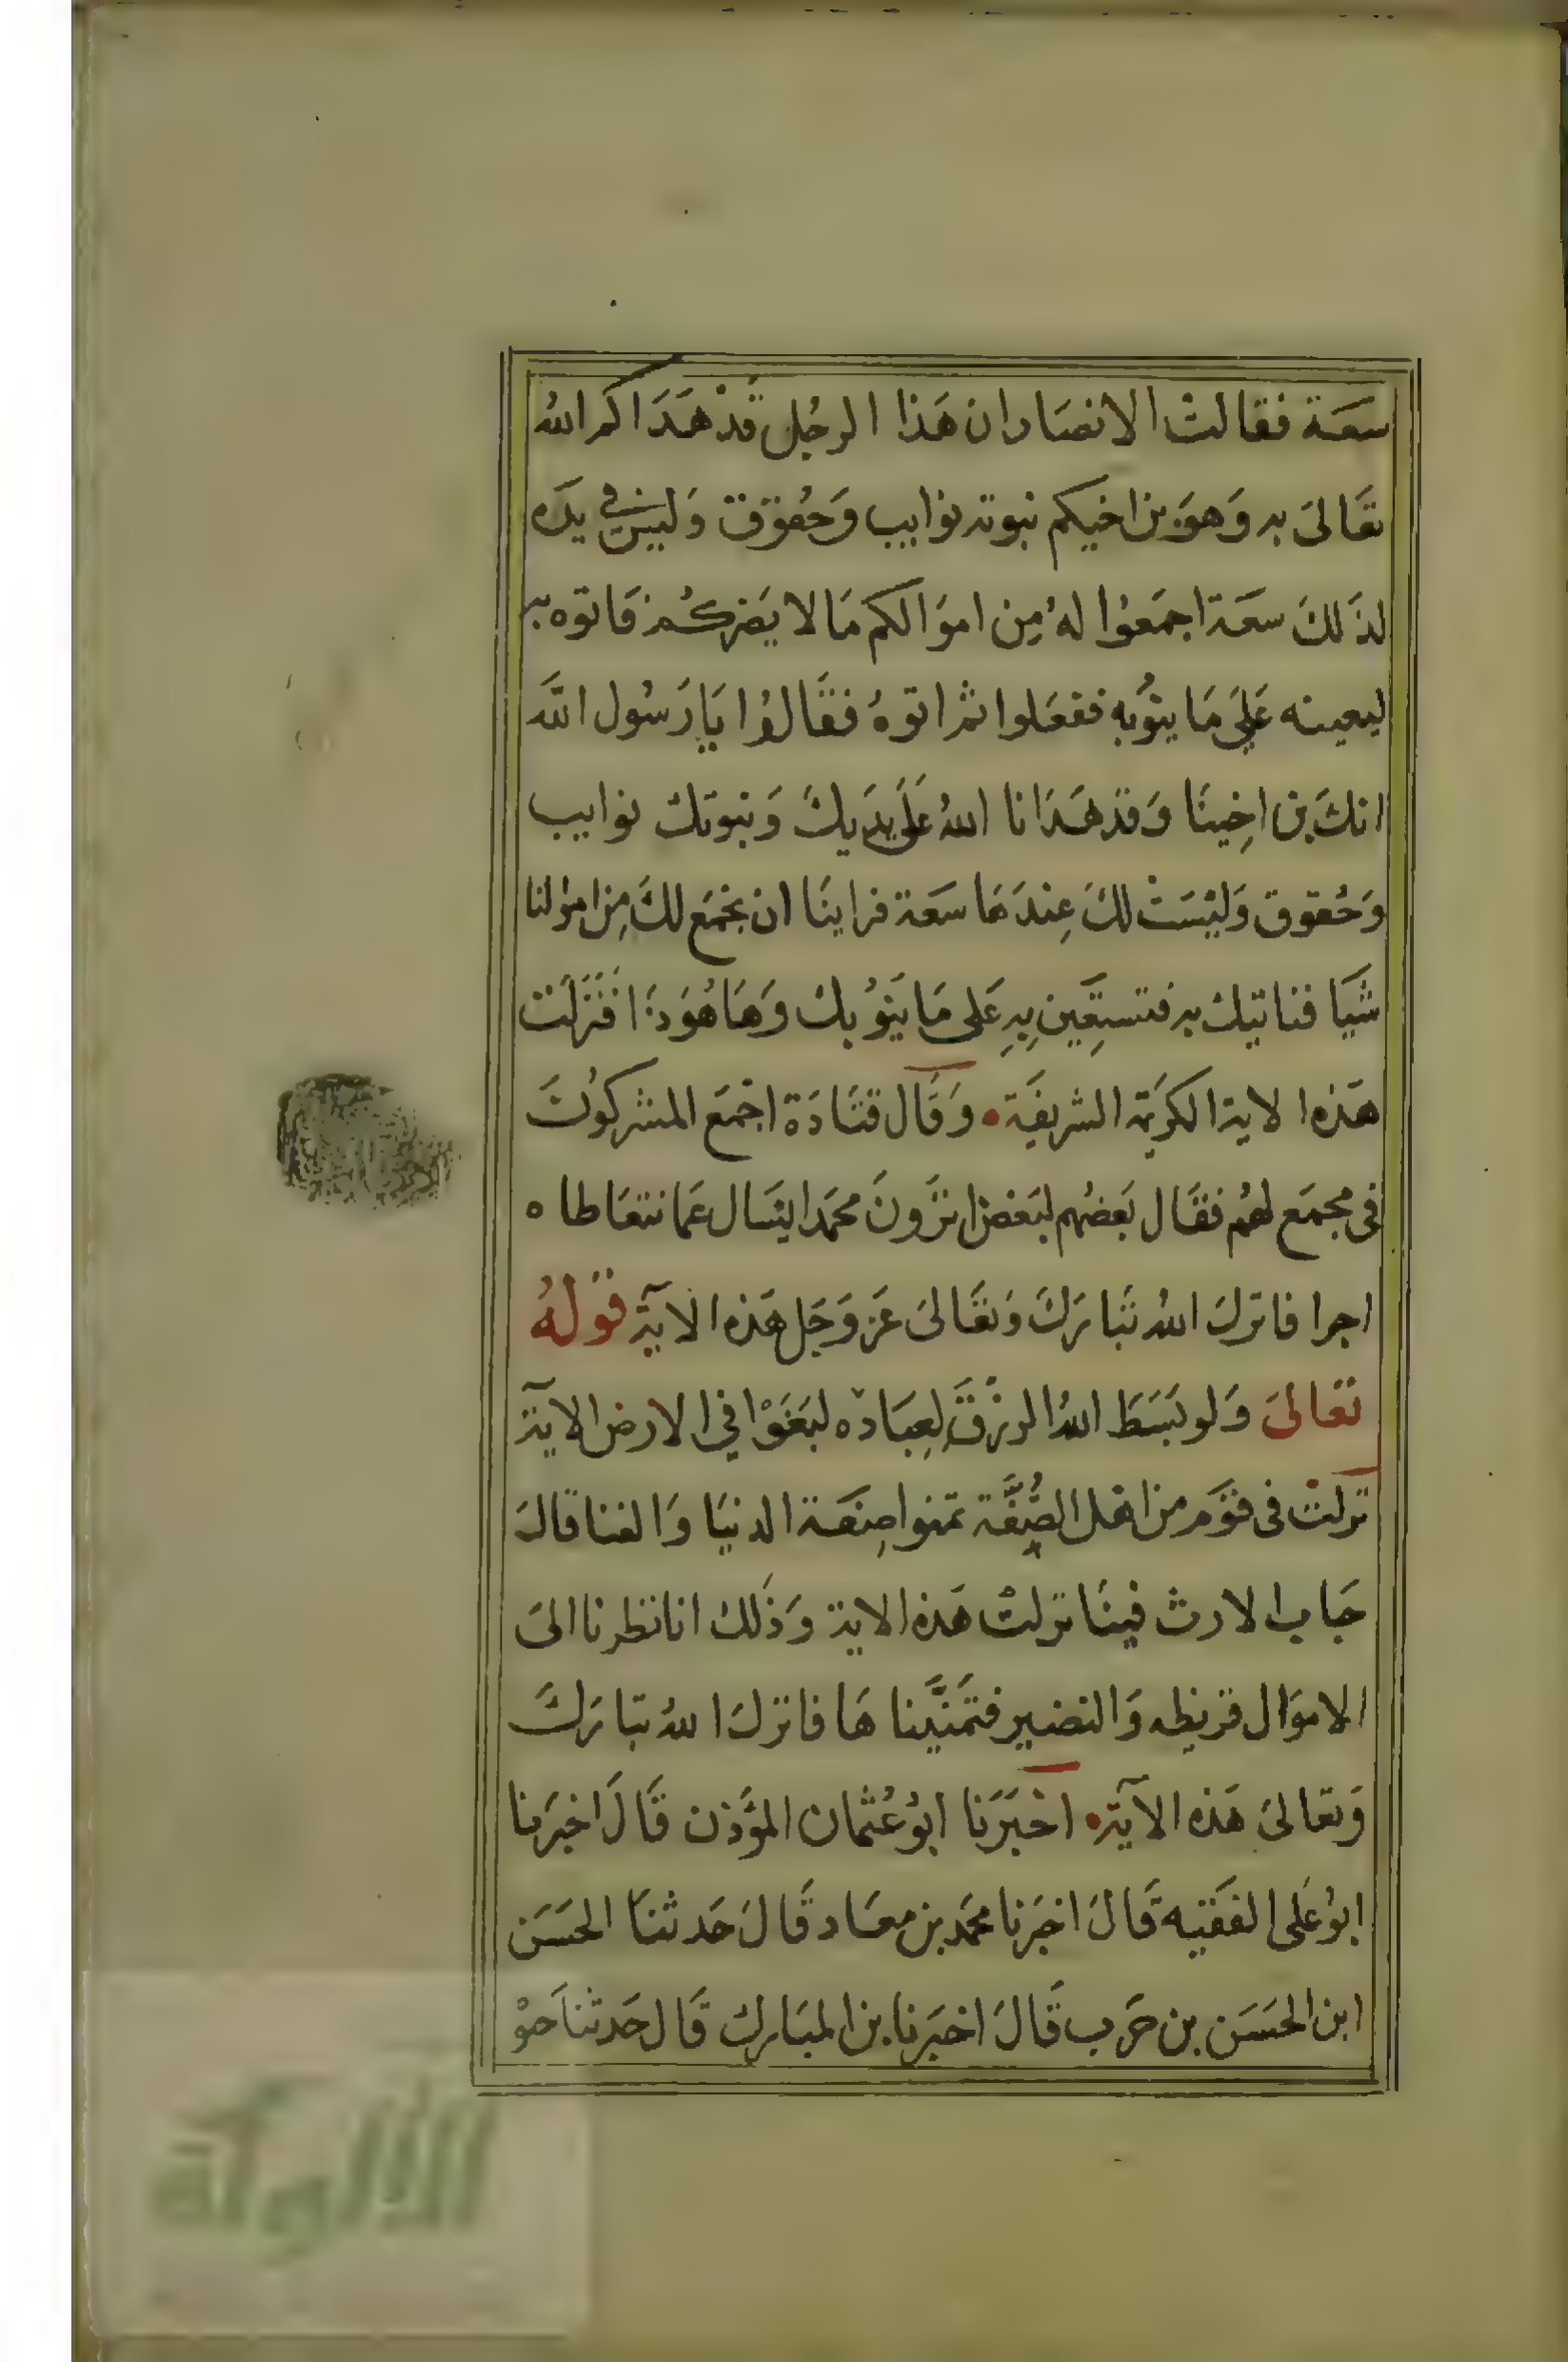 سعَة فقالتْ الانصَاران هَذا الرجُل قَدْ هَدَاكم اللهُ
تعَالىَ به وَهوَ بن اخيكم نبوته نوايب وَحُقوق وَليسَ في يدَه
لذَلكَ سعَة اجمَعوُا لهُ مِن اموَالكم مَا لا يَضركُم فَاتوه به
ليعينه عَلىَ مَا ينُوبه ففعَلوا ثم اتوهُ فقَالوُا يَا رَسُول اللَّه
انكَ بن اخِينَا وَقدهَدَانا اللهُ عَلىَ يدَيكَ وَ نبوتك نوايب
وَحُقوق وَليْسَتْ لكَ عِندَهَا سعَة فراينَا ان نجمَع لكَ مِن امولنا
شيَا فناتيك به فتستعِين بِهِ عَلى مَا يَنوُبك وَهَا هُوَ ذَا فَنَزَلَت
هَذه الاية الكريَمة الشريفَة وَقَال قتَادَة اجمَع المشركُونَ
فى مجمَع لهُم فقَال بَعضُهم لبَعض اترَونَ محمَدا يسَال عَمَا نتعَاطاه
اجرا فانزلَ اللهُ تَبارَكَ وَتعَالىَ عَز وَجَل هَذه الايَة قوَلهُ
تعَالىَ وَلو بَسَطَ اللهُ الرزقَ لِعِبَاده لبَغَوْا في الارض الايَة
نزلتْ فى قوَم من اهَل الصُفَّة تمنوا صِنعَة الدنيَا وَالغنا قالَ
خبَاب الارث فينَا نزلتْ هَذه الاية وَذَلك انا نظرنا الىَ
الاموَال قريظه وَالنضير فتمَنَّينا هَا فانزلَ اللهُ تبَارَكَ
وَتعالىَ هَذه الاَية اخْبَرَنا ابوُ عُثمان المؤَذن قَالَ اخبرَنا
ابوُ عَلى الفقيه قَالَ اخبرَنا محمَد بن معَاد قَالَ حَدثنَا الحسَن
ابن الحسَن بن حرَب قَالَ اخبَرنا بن المبَارك قَال حَدثناَ حَيوْ
الألوكة